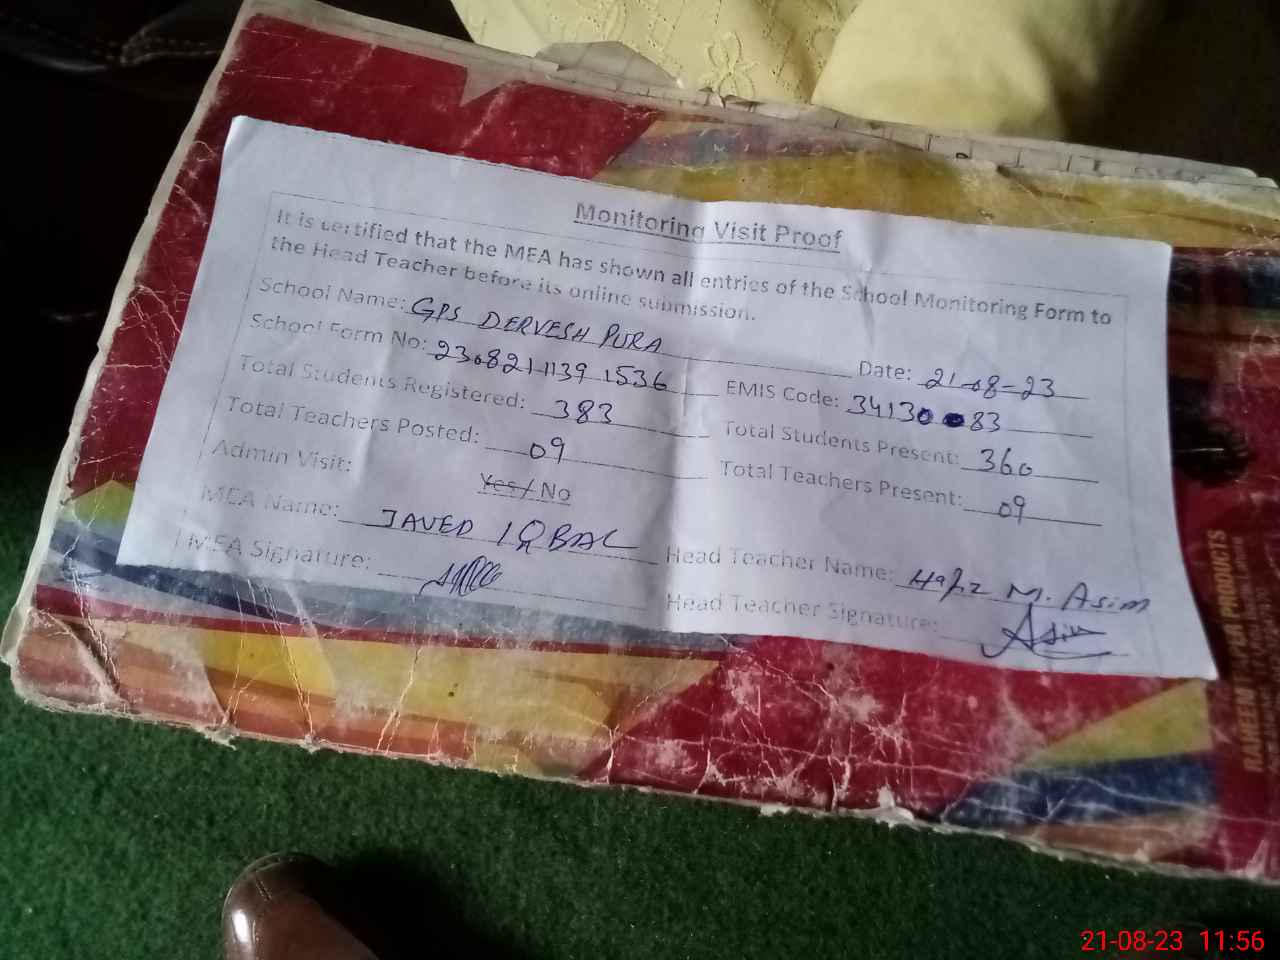 Monitoring Visit Proof
It is certified that the MEA has shown all entries of the School Monitoring Form to
the Head Teacher before its online submission.
School Name: GPS DERVESH PURA Date: 21-08-23
School Form No: 2308211139 1536 EMIS Code: 34130 83
Total Students Registered: 383 Total Students Present: 360
Total Teachers Posted: 09 Total Teachers Present: 09
Admin Visit: Yes / No
MEA Name: JAVED IQBAL Head Teacher Name: Hafiz M. Asim
MEA Signature: Head Teacher Signature: Asim
RAHEEM PAPER PRODUCTS
21-08-23 11:56